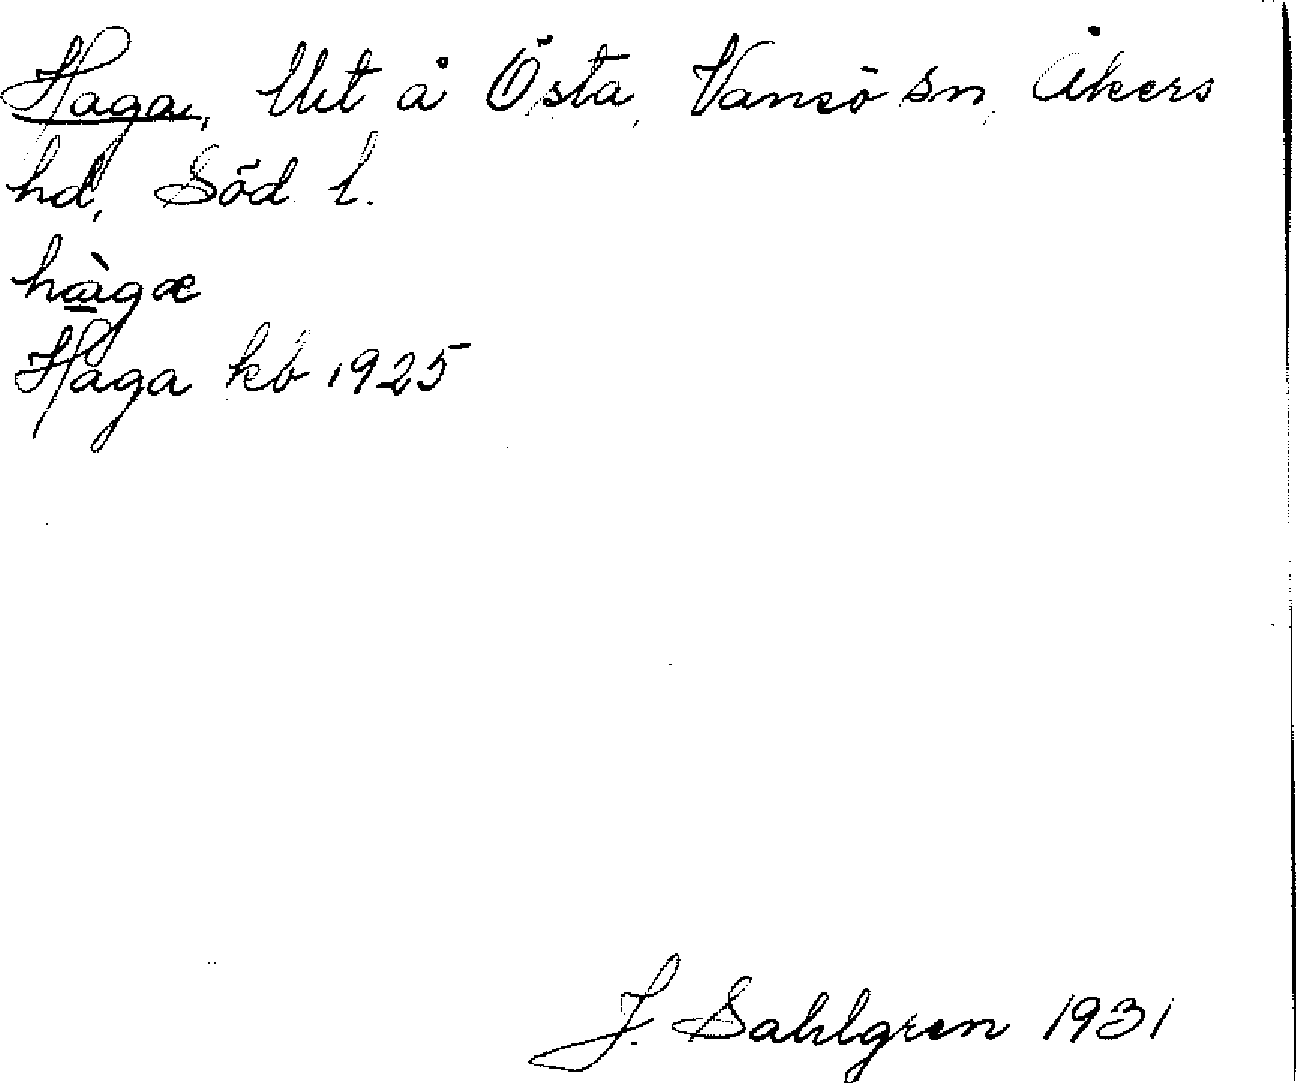 Haga, Urt å Östa, Vansö sn, Åkers
hd, Söd l.
hàgæ
Haga kb 1925
J. Sahlgren 1931